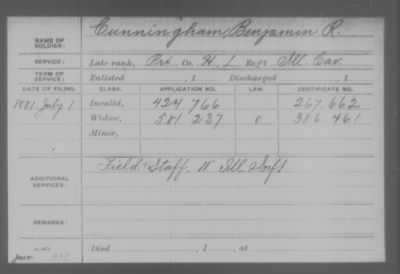 NAME OF SOLDIER: Cunningham, Benjamin R.
SERVICE: Late rank, Pri. Co. H, 1 Reg't Ill. Cav.
TERM OF SERVICE: Enlisted , 1 Discharged , 1
DATE OF FILING. CLASS. APPLICATION NO. LAW. CERTIFICATE NO.
1881 July 1 Invalid, 424.766 267.662
Widow, 581.237 386.461
Minor,
ADDITIONAL SERVICES: Field & Staff, 11 Ill Inft
REMARKS:
Died , 1 , at